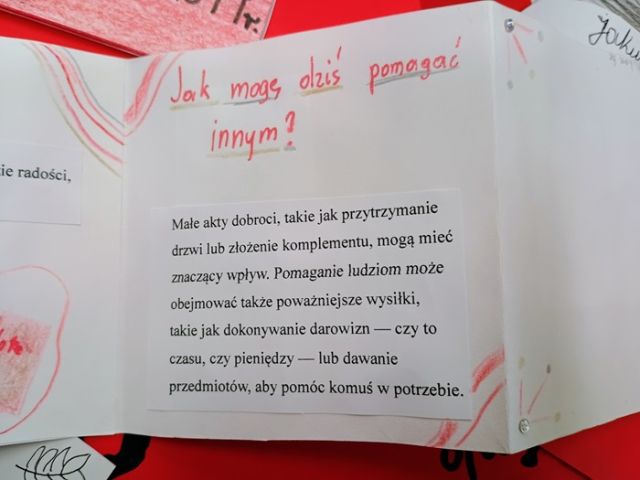 Jak mogę dziś pomagać
innym?
ie radości,
Małe akty dobroci, takie jak przytrzymanie
drzwi lub złożenie komplementu, mogą mieć
znaczący wpływ. Pomaganie ludziom może
obejmować także poważniejsze wysiłki,
takie jak dokonywanie darowizn — czy to
czasu, czy pieniędzy — lub dawanie
przedmiotów, aby pomóc komuś w potrzebie.